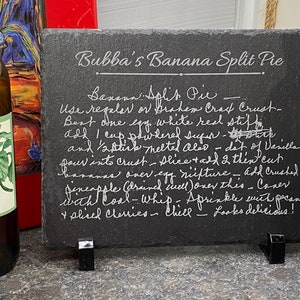 Bubba's Banana Split Pie
Banana Split Pie —
Use regular or Graham Crax Crust —
Beat one egg white real stiff
Add 1 cup powdered sugar —
and stick melted oleo — dot of Vanilla
pour into crust — Slice + add 2 thin cut
bananas over egg mixture — Add crushed
pineapple (drained well) over this — Cover
with Cool-Whip — Sprinkle with pecans
+ sliced Cherries — Chill — Looks delicious!